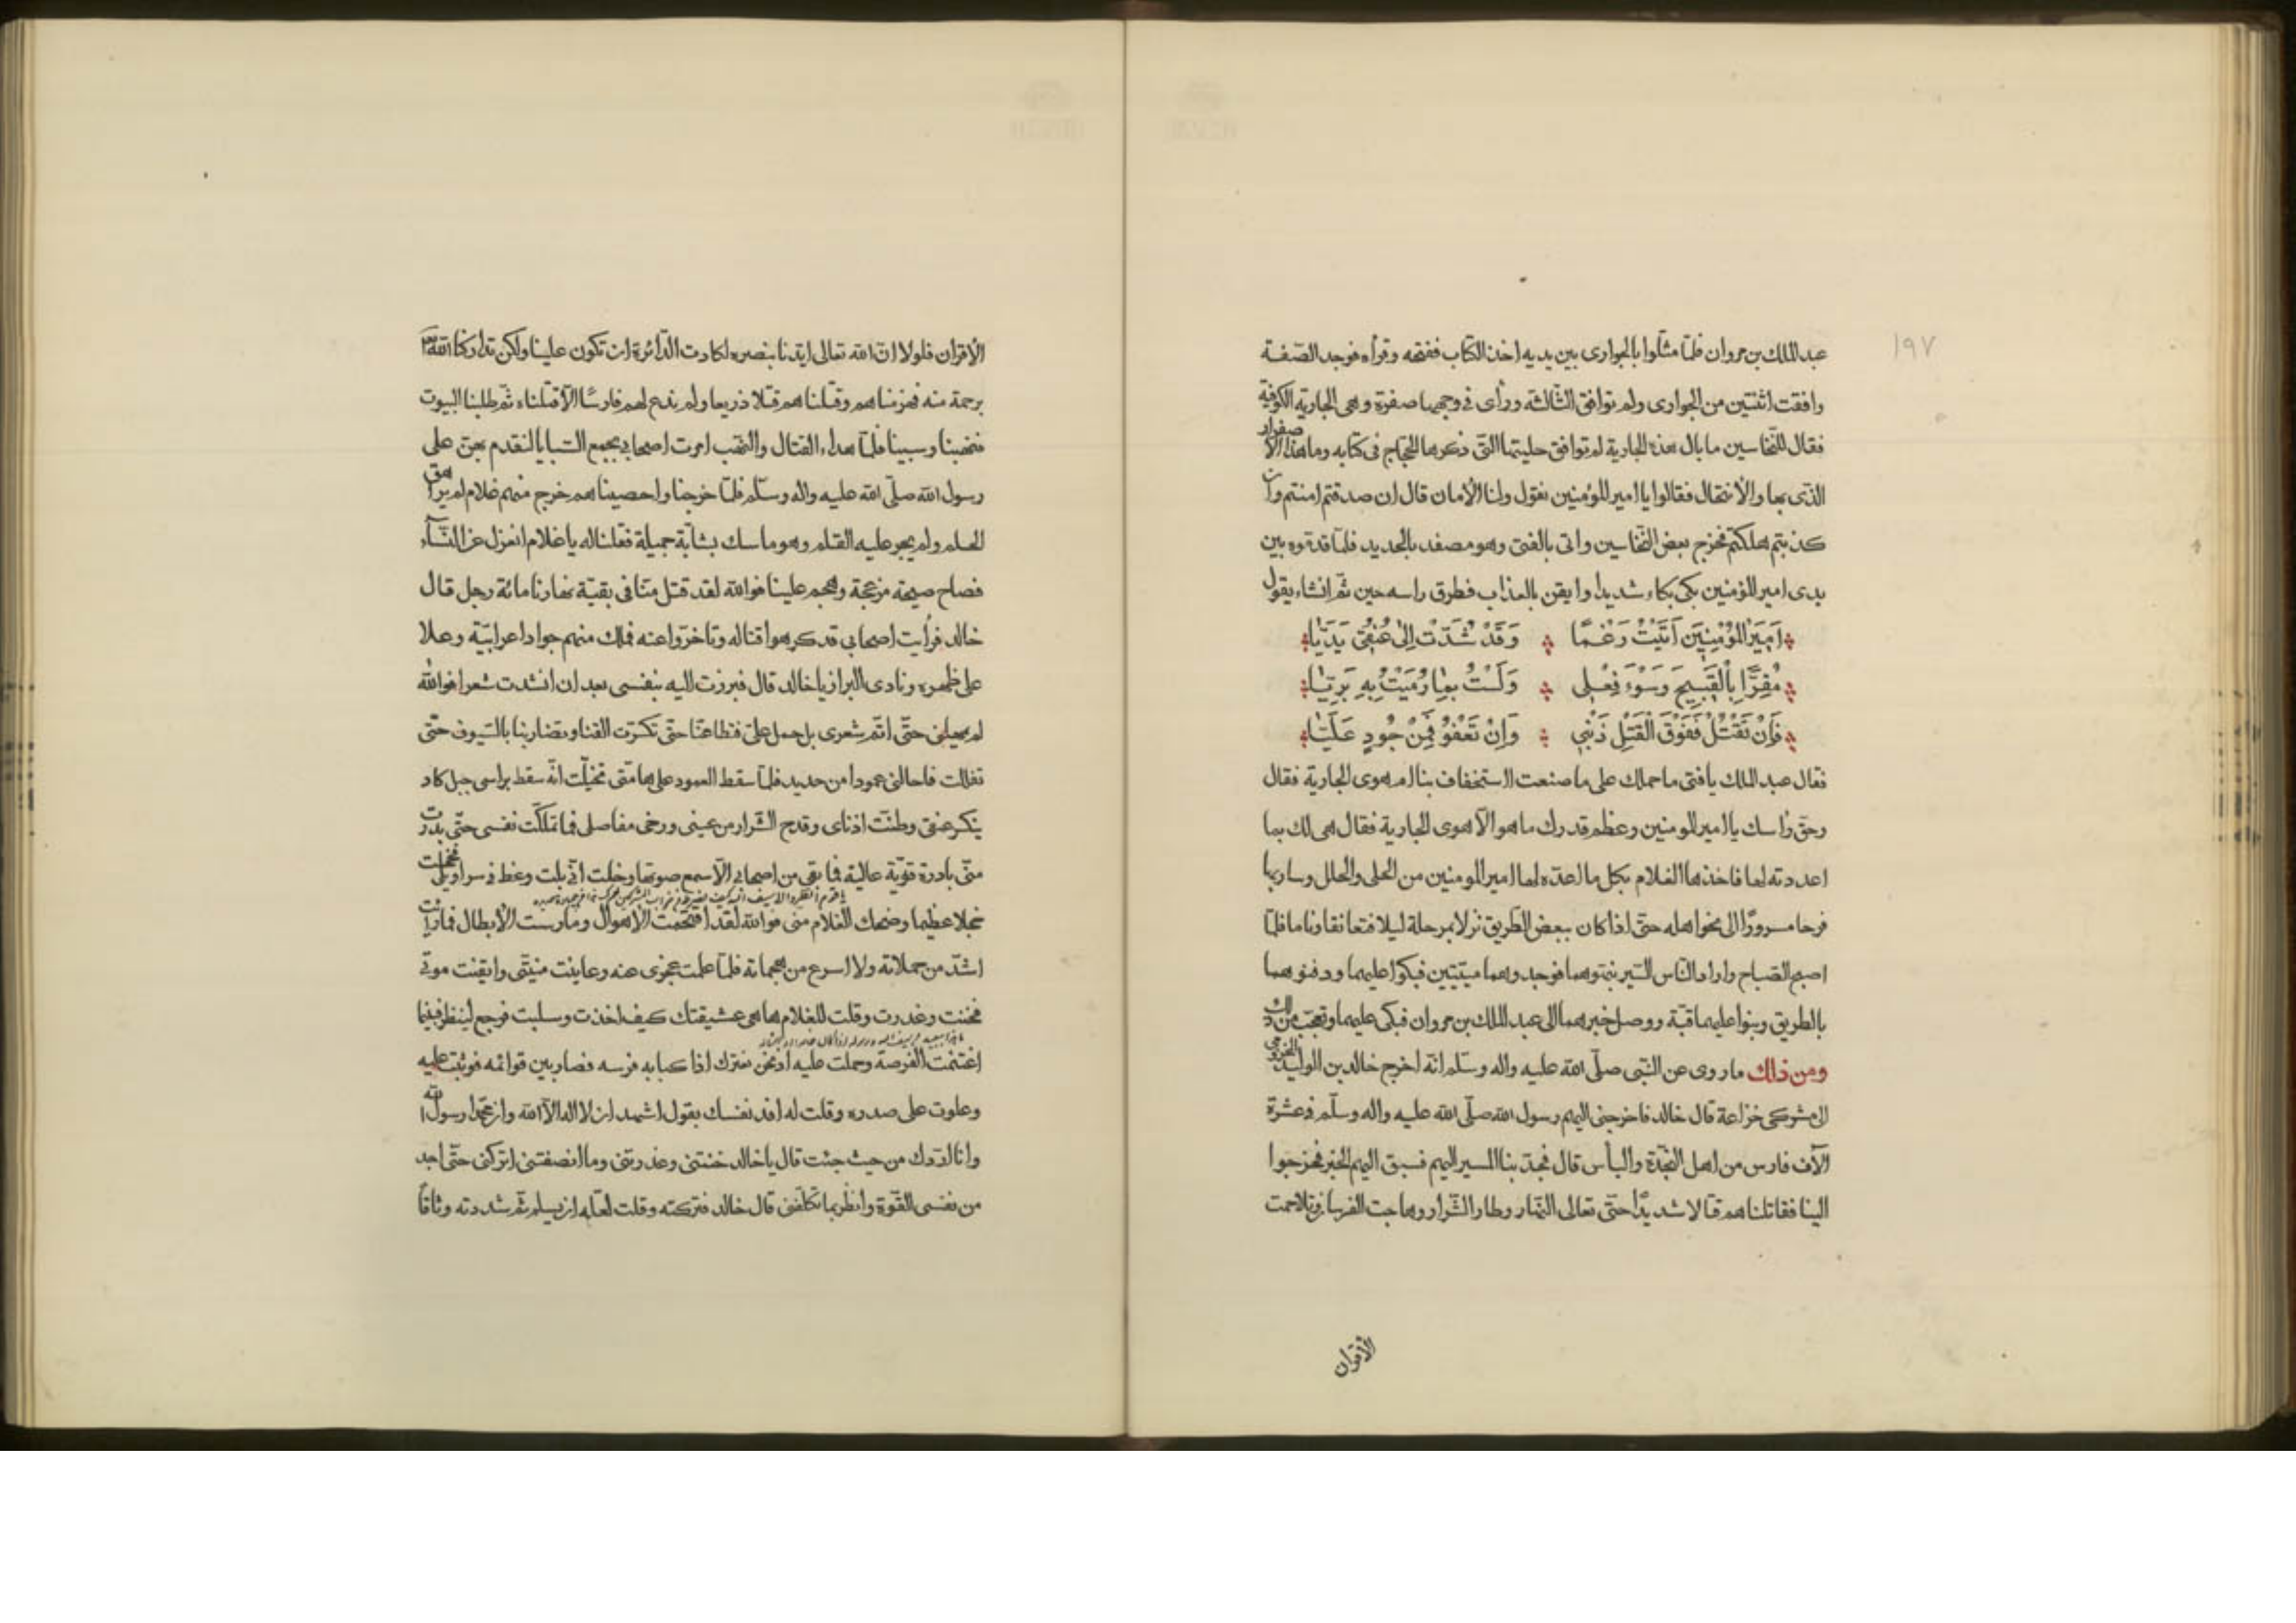 ١٩٧
عبد الملك بن مروان فلمّا مثلوا بالجواري بين يديه اخذ الكتاب ففتحه وقراه فوجد الصّفة
وافقت اثنتين من الجواري ولم توافق الثّالثة وراى في وجهها صفرة وهي الجارية الكوفية
فقال للنّخاسين ما بال هذه الجارية لم توافق حليتها الّتي ذكرها الحجاج في كتابه وما هذا الاصفرار
الذي بها والانتحال فقالوا يا امير المؤمنين نقول ولنا الأمان قال ان صدقتم امنتم وان
كذبتم هلكتم فخرج بعض النّخاسين واتى بالفتى وهو مصفد بالحديد فلمّا قدموه بين
يدي امير المؤمنين بكى بكاء شديدا وايقن بالعذاب فطرق راسه حين ثمّ انشاء يقول
اَمِيرَ الْمُؤْمِنِينَ اَتَيْتُ رَغْمًا وَقَدْ شُدَّتْ اِلىٰ عُنُقِي يَدَيَّا
مُقِرًّا بِالْقَبِيحِ وَسَوْءِ فِعْلي وَلَسْتُ بِمَا رُمِيتُ بِهِ بَرِيَّا
فَاِنْ تَقْتُلْ فَفَوْقَ الْقَتْلِ ذَنْبِي وَاِنْ تَعْفُو فَمِنْ جُودٍ عَلَيَّا
فقال عبد الملك يا فتى ما حملك على ما صنعت استخفاف بنا ام هوى الجارية فقال
وحق راسك يا امير المومنين وعظم قدرك ما هو الاّ هوى الجارية فقال هي لك بما
اعددته لها فاخذها الغلام بكل ما اعدّه لها امير المومنين من الحلى والحلل وسار بها
فرحا مسرورًا الى نحو اهله حتّى اذا كان ببعض الطّريق نزلا بمرحلة ليلا فتعانقا وناما فلمّا
اصبح الصّباح واراد النّاس السّير نبّهوهما فوجدوهما ميّتين فبكوا عليهما ودفنوهما
بالطريق وبنوا عليهما قبّة ووصل خبرهما الى عبد الملك بن مروان فبكى عليهما وتعجّب من ذلك
ومن ذلك ما روى عن النّبي صلّى الله عليه واله وسلّم انّه اخرج خالد بن الوليد المخزومي
الى مشركي خزاعة قال خالد فاخرجني اليهم رسول الله صلّى الله عليه واله وسلّم في عشرة
الاف فارس من اهل النّجدة والبأس قال فجدّ بنا المسير اليهم فسبق اليهم الخبر فخرجوا
الينا فقاتلناهم قتالا شديدًا حتّى تعالى النّهار وطار الشّرار وهاجت الفرسان وتلاحمت
الأقران
الاقران فلولا انّ الله تعالى ايّدنا بنصره لكادت الدّائرة ان تكون علينا ولكن تداركنا الله
برحمة منه فهزمناهم وقتلناهم قتلا ذريعا ولم ندع لهم فارسًا الاّ قتلناه ثمّ طلبنا البيوت
فنهبنا وسبينا فلمّا هداء القتال والنّهب امرت اصحابي بجمع السّبايا لنقدم بهنّ على
رسول الله صلّى الله عليه واله وسلّم فلمّا خرجنا واحصيناهم خرج منهم غلام لم يراهق
الحلم ولم يجر عليه القلم وهو ماسك بشابّة جميلة فقلنا له يا غلام انعزل عن النّسآء
فصاح صيحة مزعجة وهجم علينا فوالله لقد قتل منّا في بقيّة نهارنا مائة رجل قال
خالد فرأيت اصحابي قد كرهوا قتاله وتاخّروا عنه فملك منهم جوادا عرابيّة وعلا
على ظهره ونادى البراز يا خالد قال فبرزت اليه بنفسي بعد ان انشدت شعرا فوالله
لم يمهلني حتّى اتمّ شعري بل حمل عليّ فتطاعنّا حتّى تكسّرت القنا وتضاربنا بالسّيوف حتّى
تفللت فاحالني عمودا من حديد فلمّا سقط العمود على هامتى تخيّلت انّه سقط براسي جبل كاد
ينكسر عنقي وطنّت اذناى وقدح الشّرار من عيني ورخى مفاصلي فما تملكّت نفسي حتّى بدرت
منّي بادرة قويّة عالية فما بقى من اصحابي الاّ سمع صوتها وخلت انّي بلت وغط في سراويلي فخجلت
خجلا عظيما وضحك الغلام منّي فوالله لقد اقتحمت الاهوال ومارست الأبطال فما رايت
اشدّ من حملاته ولا اسرع من هجماته فلمّا علمت عجزي عنه وعاينت منيّتي وايقنت موتي
فخنت وغدرت وقلت للغلام ها هي عشيقتك كيف اخذت وسلبت فرجع لينظر فينا
اغتنمت الفرصة وحملت عليه لونحن نعترك اذا كبا به فرسه فصار بين قوائمه فوثبت عليه
وعلوت على صدره وقلت له افد نفسك بقول اشهد ان لا اله الاّ الله وان محمّدا رسول الله
وانا اردّك من حيث جئت قال يا خالد خنتني وغدرتني وما انصفتني اتركني حتّى اجد
من نفسي القوّة وانظر ما تكلّفني قال خالد فتركته وقلت لعلّه ان يسلم ثمّ شددته وثاقًا